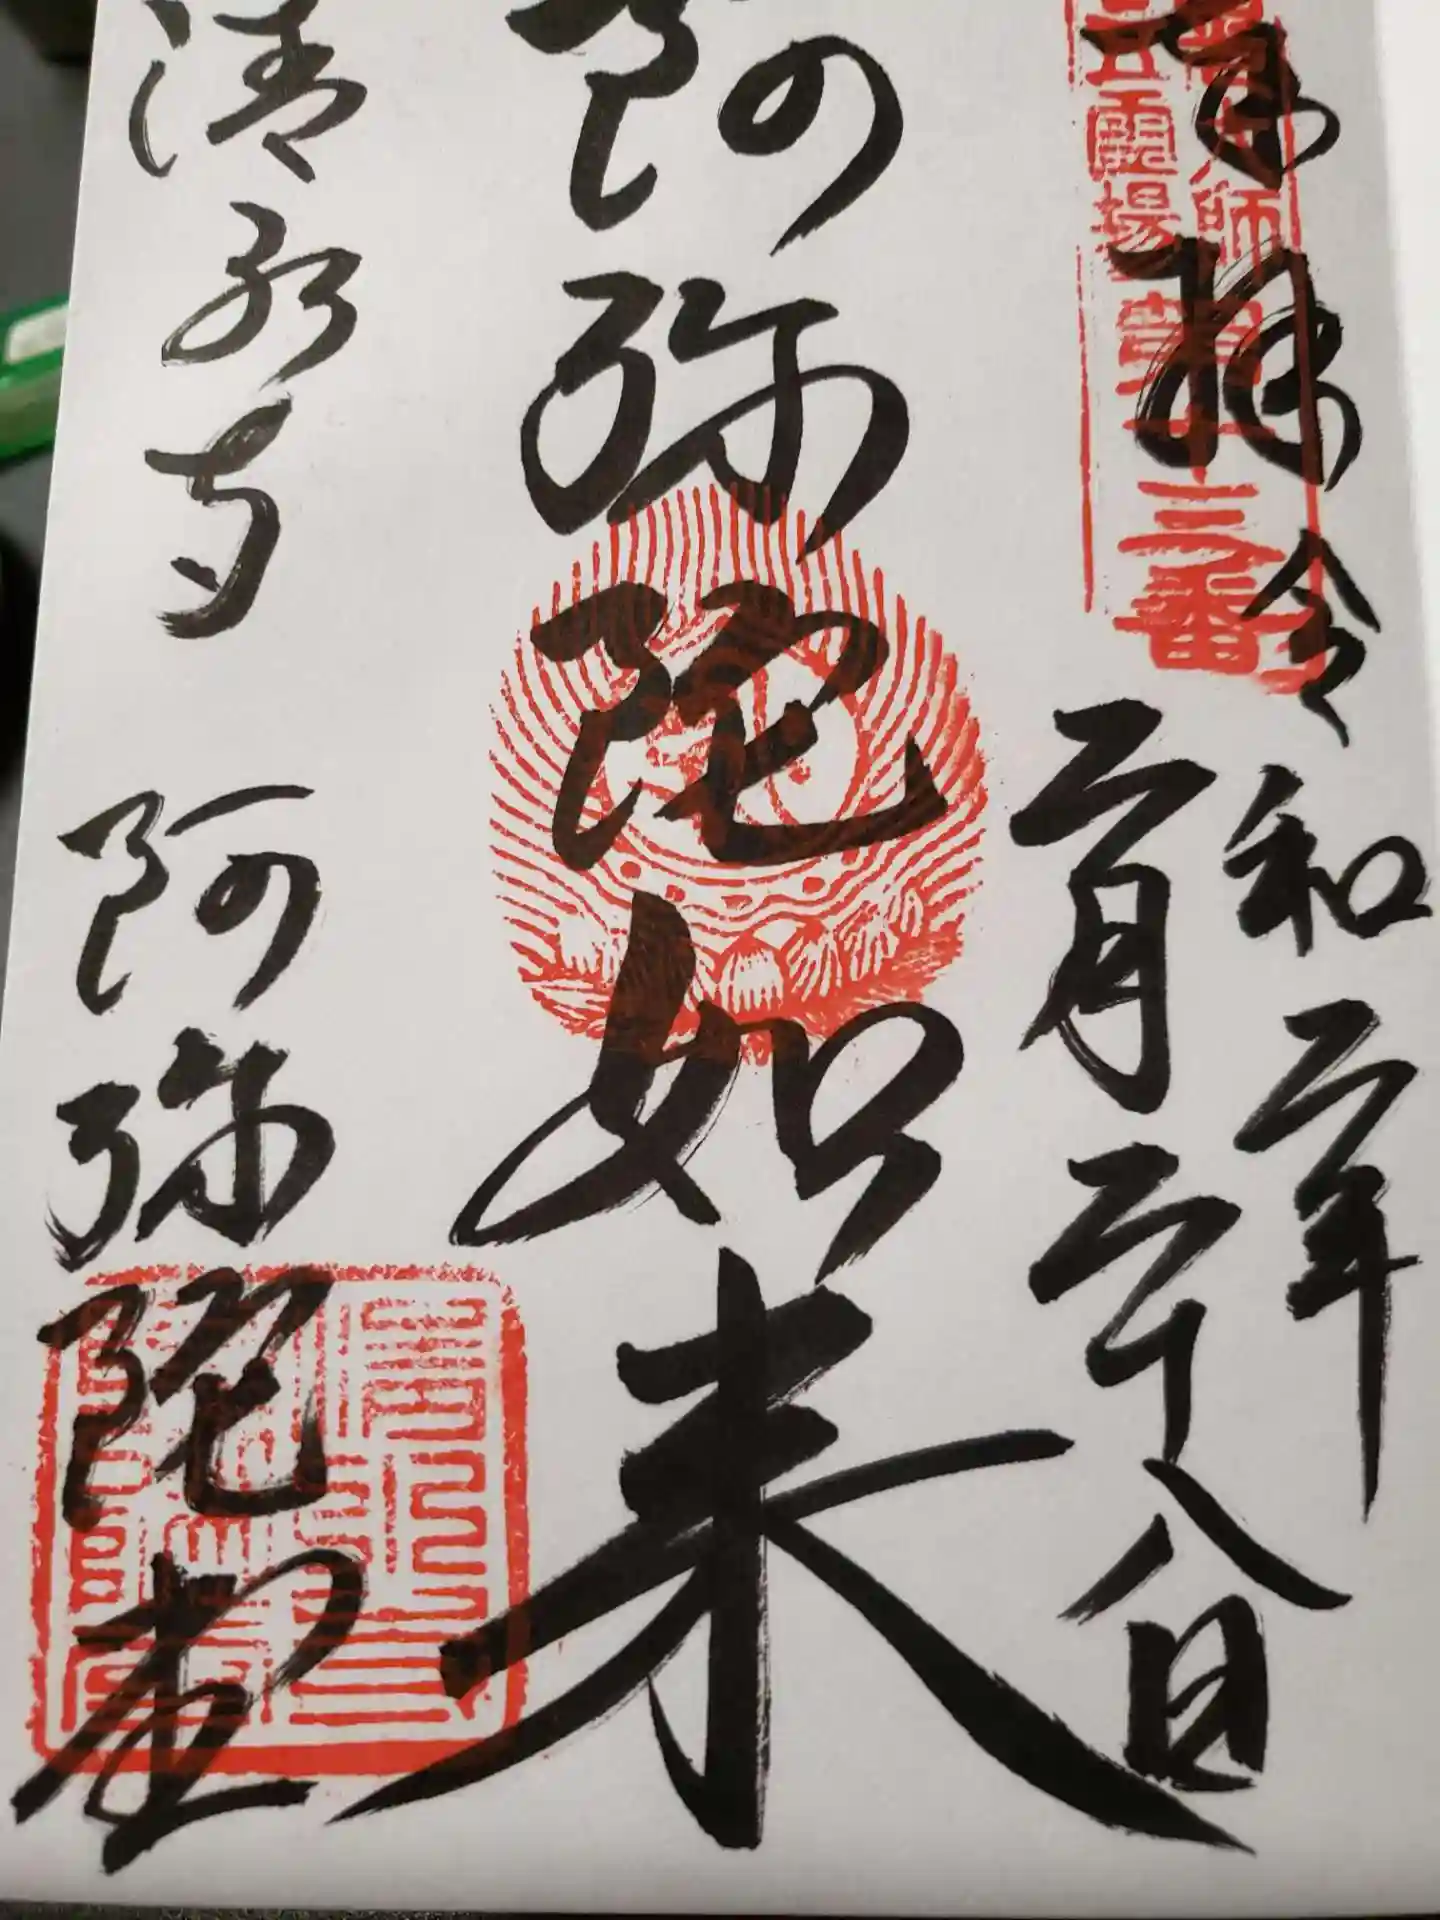 奉拝
令和二年
二月二十八日
霊場
第十三番
阿弥陀如来
清水寺 阿弥陀堂